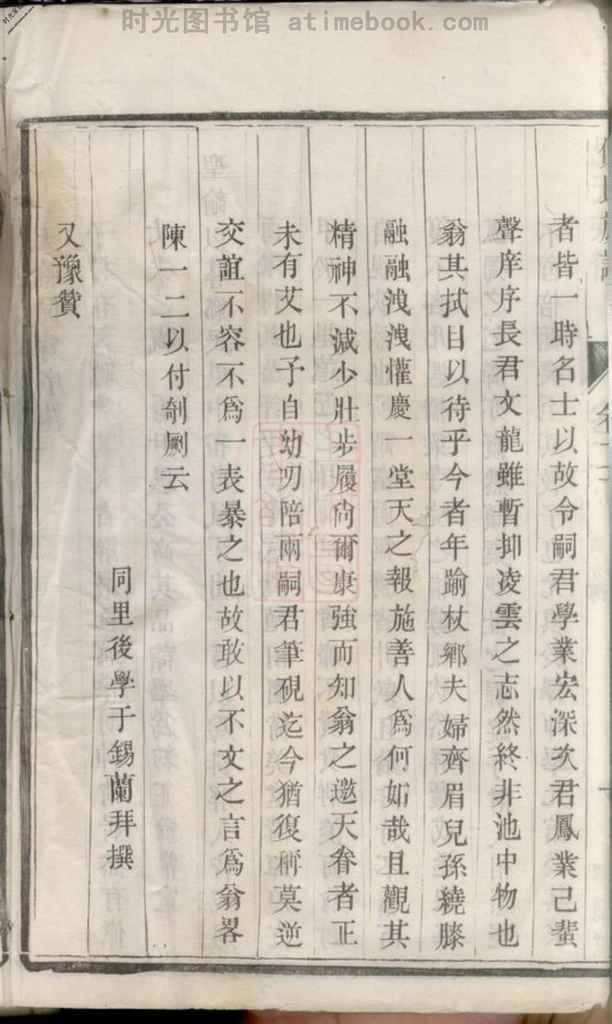 时光图书馆 atimebook.com
者皆一時名士以故令嗣君學業宏深次君鳳業己蜚
聲庠序長君文龍雖暫抑凌雲之志然終非池中物也
翁其拭目以待乎今者年踰杖鄉夫婦齊眉兒孫繞膝
融融洩洩懽慶一堂天之報施善人爲何如哉且觀其
精神不減少壯步履尙爾康強而知翁之邀天眷者正
未有艾也予自幼叨陪兩嗣君筆硯迄今猶復稱莫逆
交誼不容不爲一表暴之也故敢以不文之言爲翁畧
陳一二以付剞劂云
同里後學于錫蘭拜撰
又豫贊